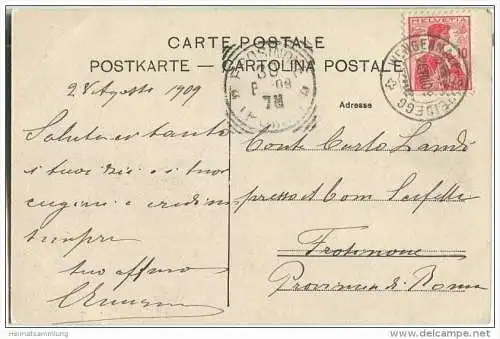 CARTE POSTALE
POSTKARTE – CARTOLINA POSTALE
HELVETIA
10
FROSINONE
7M
Adresse
28 Agosto 1909
Salutami tanto
i tuoi zii e i tuoi
cugini e credimi
sempre
tuo affmo
Conte Carlo Landi
presso il Com
Frosinone
Provincia di Roma
Heimatsammlung
www.delcampe.net